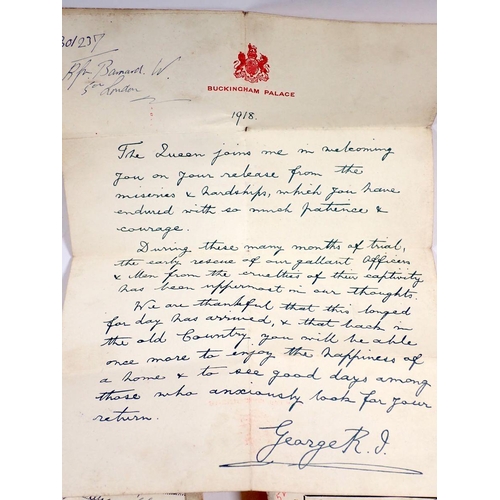 30/237
Rfn Barnard. W.
5th London
BUCKINGHAM PALACE
1918.
The Queen joins me in welcoming
you on your release from the
miseries & hardships, which you have
endured with so much patience &
courage.
During these many months of trial,
the early rescue of our gallant Officers
& Men from the cruelties of their captivity
has been uppermost in our thoughts.
We are thankful that this longed
for day has arrived, & that back in
the old Country you will be able
once more to enjoy the happiness of
a home & to see good days among
those who anxiously look for your
return.
George R.I.